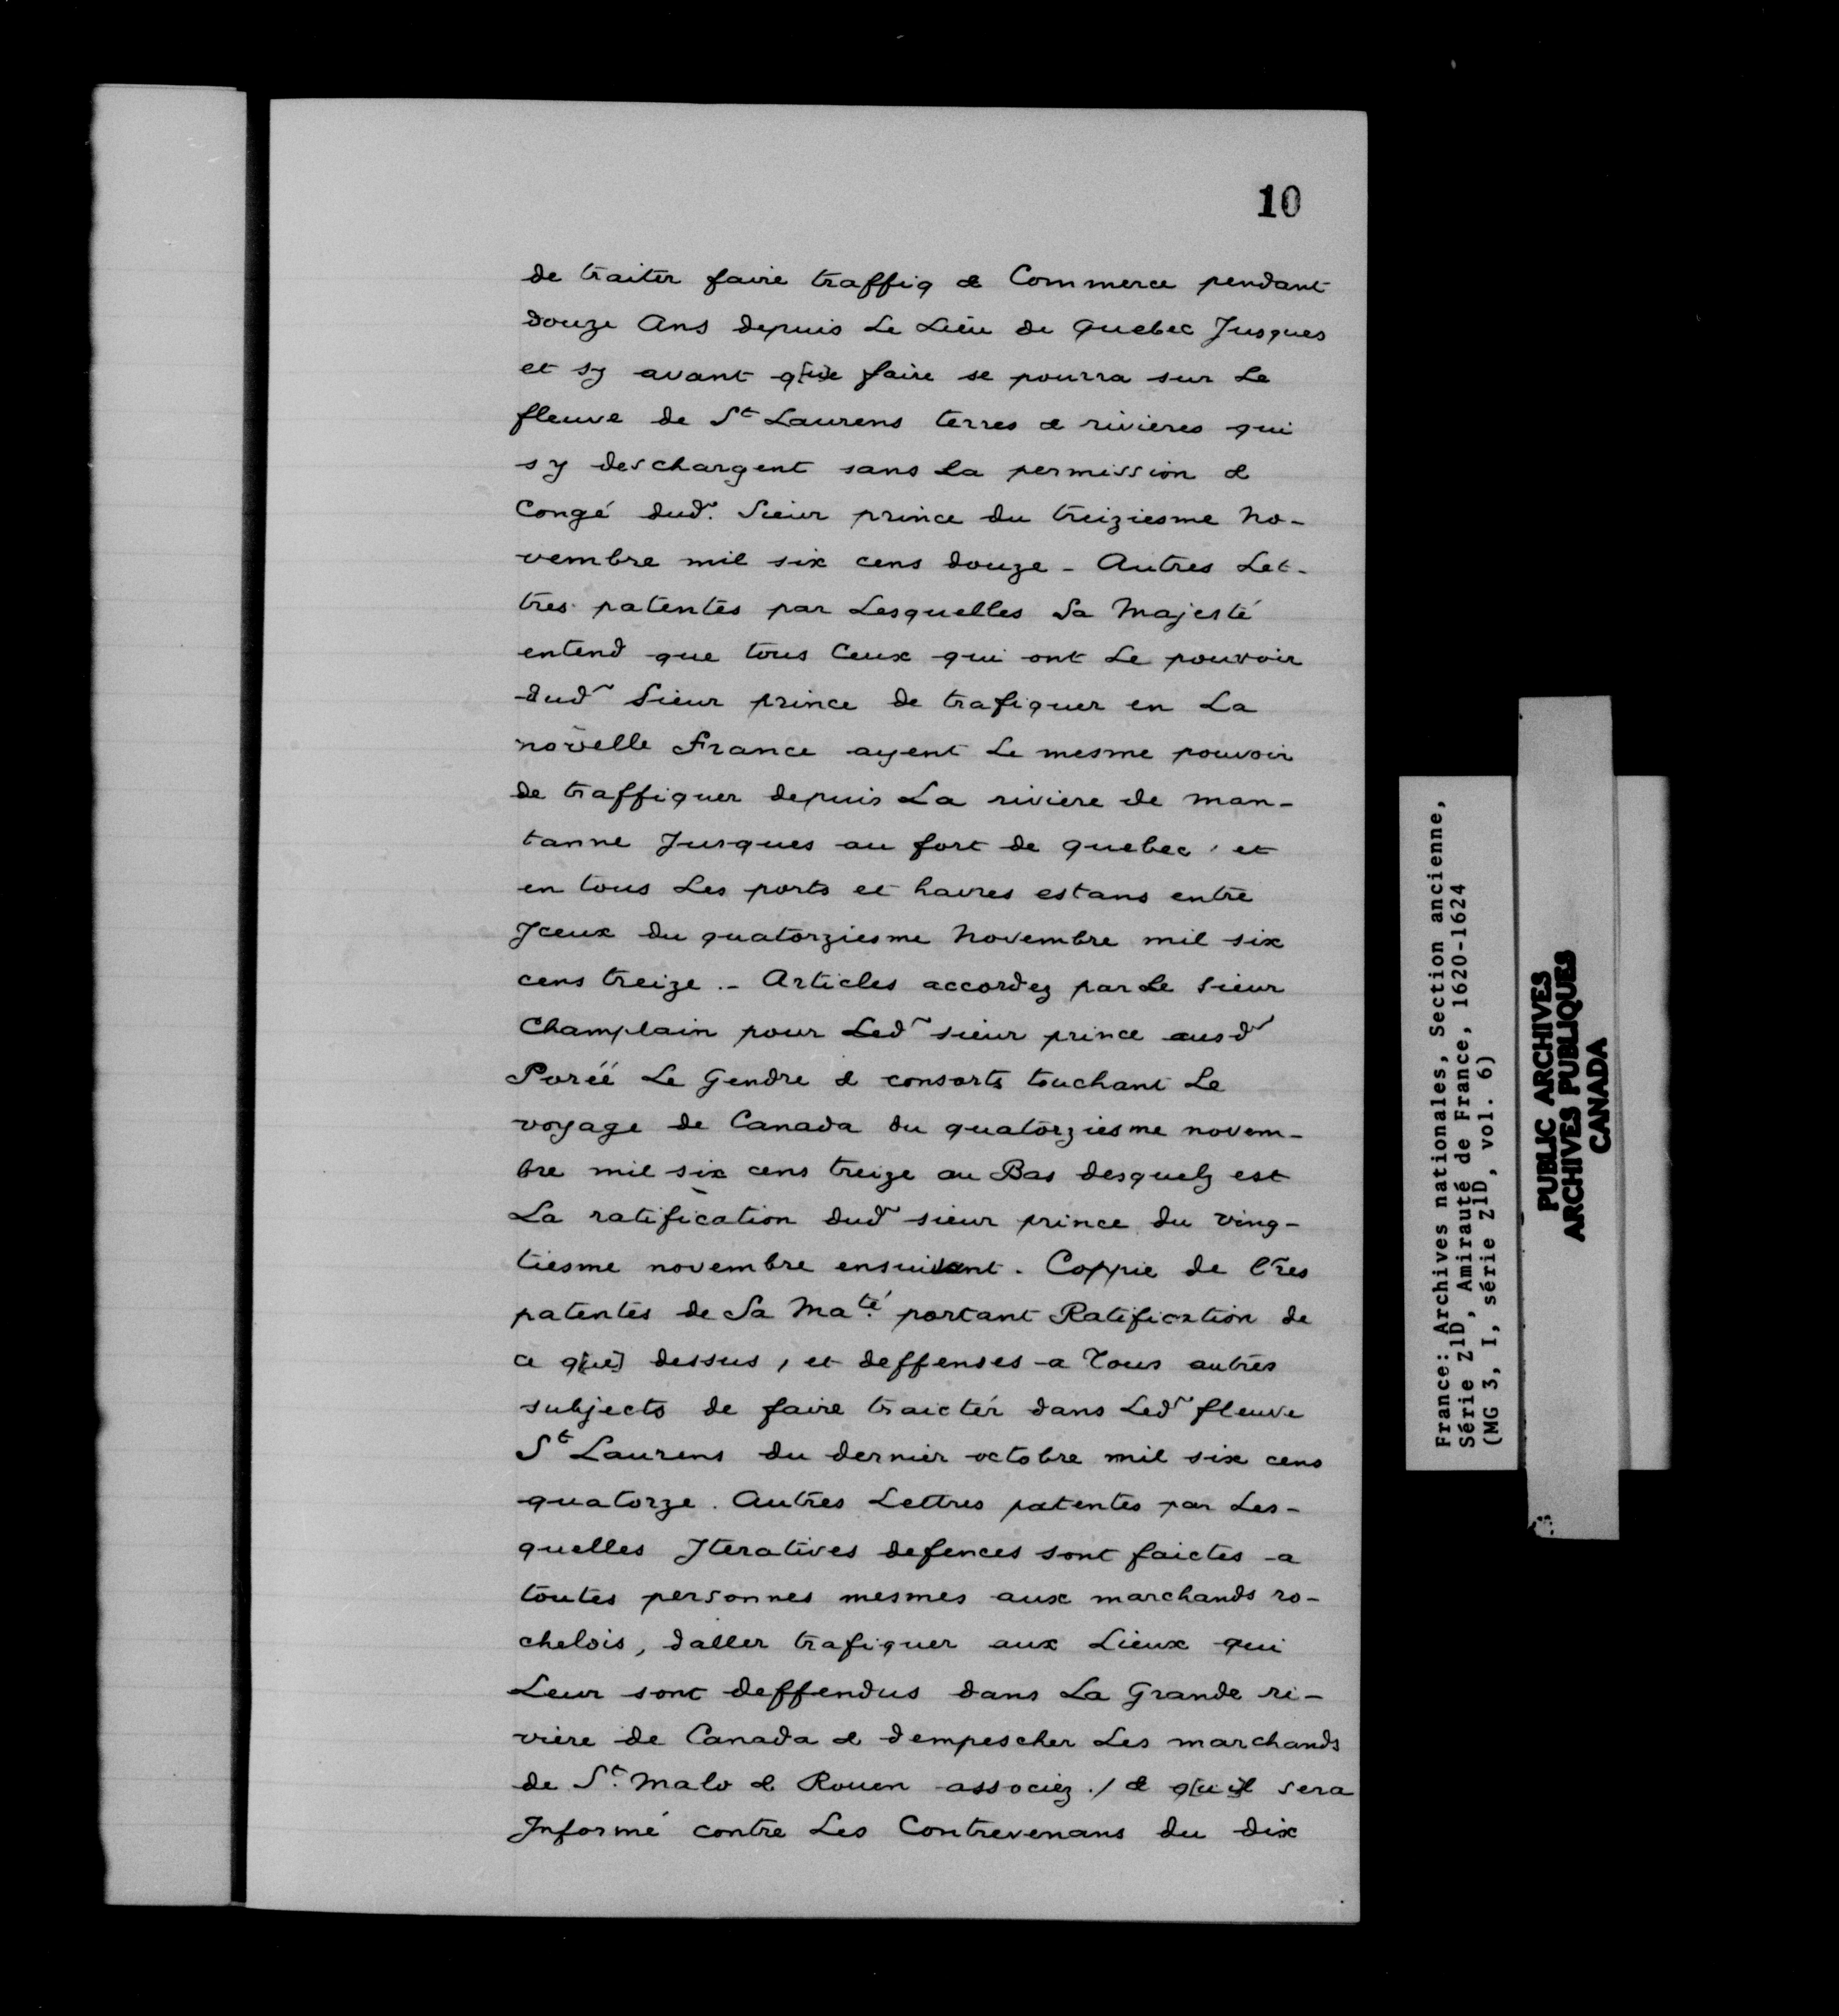 10
de traiter faire traffiq & Commerce pendant
douze Ans depuis Le Lieu de Quebec Jusques
et sy avant q[ue] faire se pourra sur Le
fleuve de St Laurens terres & rivieres qui
sy deschargent sans La permission &
Congé dud. Sieur prince du treiziesme No-
vembre mil six cens douze - Autres Let-
tres patentes par Lesquelles Sa Majesté
entend que tous Ceux qui ont Le pouvoir
dud~ Sieur prince de trafiquer en La
nouvelle France ayent Le mesme pouvoir
de traffiquer depuis La riviere de man-
tanne Jusques au fort de quebec, et
en tous Les ports et havres estans entre
Jceux du quatorziesme Novembre mil six
cens treize.- Articles accordez par Le Sieur
Champlain pour Led~ sieur prince ausd~
Poréé Le Gendre & consorts touchant Le
voyage de Canada du quatorziesme novem-
bre mil six cens treize au Bas desquelz est
La ratification dud~ sieur prince du ving-
tiesme novembre ensuivant. Coppie de l~res
patentes de Sa Ma.té portant Ratification de
ce q[ue] dessus, et deffenses a Tous autres
subjects de faire traicter dans Led~ fleuve
St Laurens du dernier octobre mil six cens
quatorze. Autres Lettres patentes par Les-
quelles Jteratives defences sont faictes a
toutes personnes mesmes aux marchands ro-
chelois, daller trafiquer aux Lieux qui
Leur sont deffendus dans La Grande ri-
viere de Canada & dempescher Les marchands
de St. Malo & Rouen associez ./ & q[u'i]l sera
Jnformé contre Les Contrevenans du dix
France: Archives nationales, Section ancienne,
Série Z1D, Amirauté de France, 1620-1624
(MG 3, I, série Z1D, vol. 6)
PUBLIC ARCHIVES
ARCHIVES PUBLIQUES
CANADA